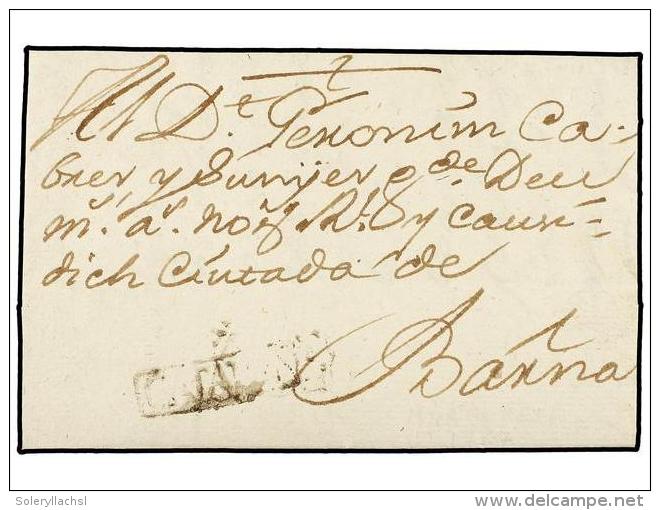 Al Dr. Geronim Ca-
brer, y Sunÿer g.de Deu
m.s a.s
y Causi=
dich Ciutada de
Barña
Soleryllachsl
www.delcampe.net